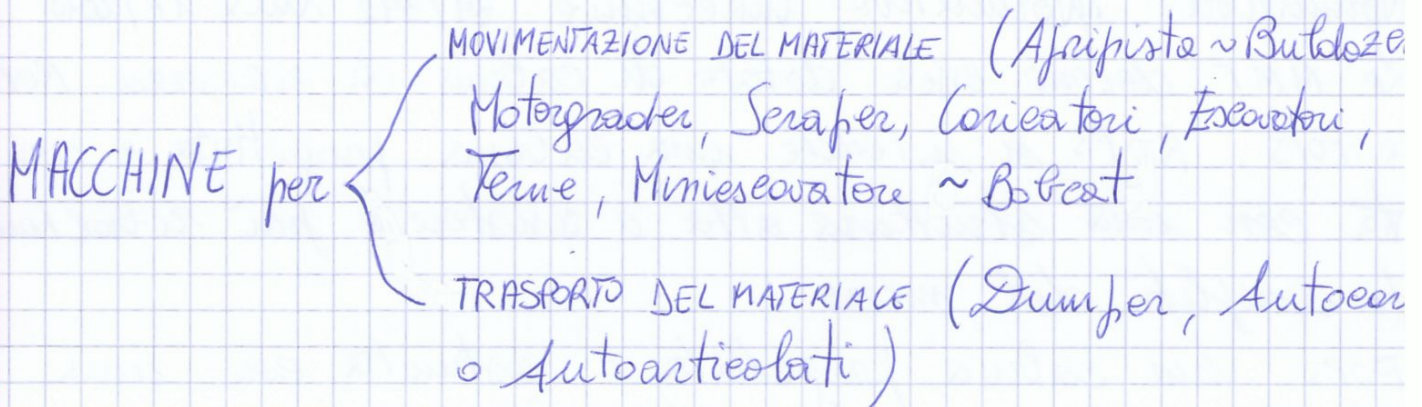 MOVIMENTAZIONE DEL MATERIALE (Apripista ~ Buldoze
Motorgrader, Scraper, Caricatori, Escavatori,
MACCHINE per
Terne, Miniescavatore ~ Bobcat
TRASPORTO DEL MATERIALE (Dumper, Autocar
o Autoarticolati)